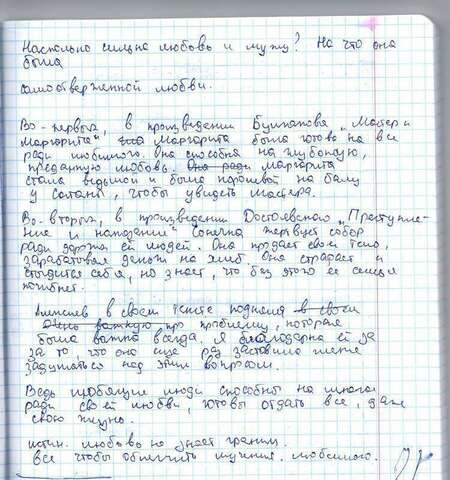 Насколько сильна любовь к мужу? На что она
была
самоотверженной любви.
Во-первых, в произведении Булгакова „Мастер и
Маргарита" Маргарита была готова на все
ради любимого. Она способна на глубокую,
преданную любовь. Она ради Маргарита
стала ведьмой и была королевой на балу
у Сатаны, чтобы увидеть Мастера.
Во-вторых, в произведении Достоевского „Преступле-
ние и наказание" Сонечка жертвует собой
ради дорогих ей людей. Она продает свое тело,
зарабатывая деньги на хлеб. Она страдает и
стыдится себя, но знает, что без этого ее семья
погибнет.
в своем тексте подняла в своем
Очень важную проблему, которая
была важна всегда. Я благодарна ей за
за то, что она еще раз заставила меня
задуматься над этим вопросом.
Ведь любящие люди способны на многое
ради своей любви, готовы отдать все, даже
свою жизнь.
истин. любовь не знает границ
все чтобы облегчить мучения любимого.